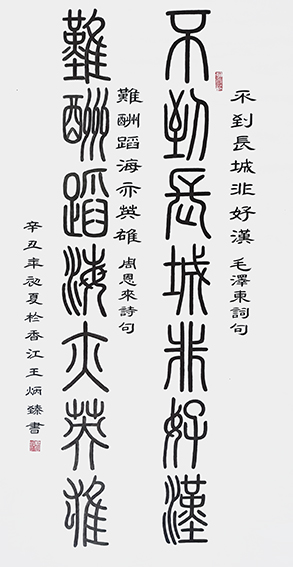 不到長城非好漢
不到長城非好漢 毛澤東詞句
難酬蹈海亦英雄
難酬蹈海亦英雄 周恩來詩句
辛丑年初夏於香江王炳臻書